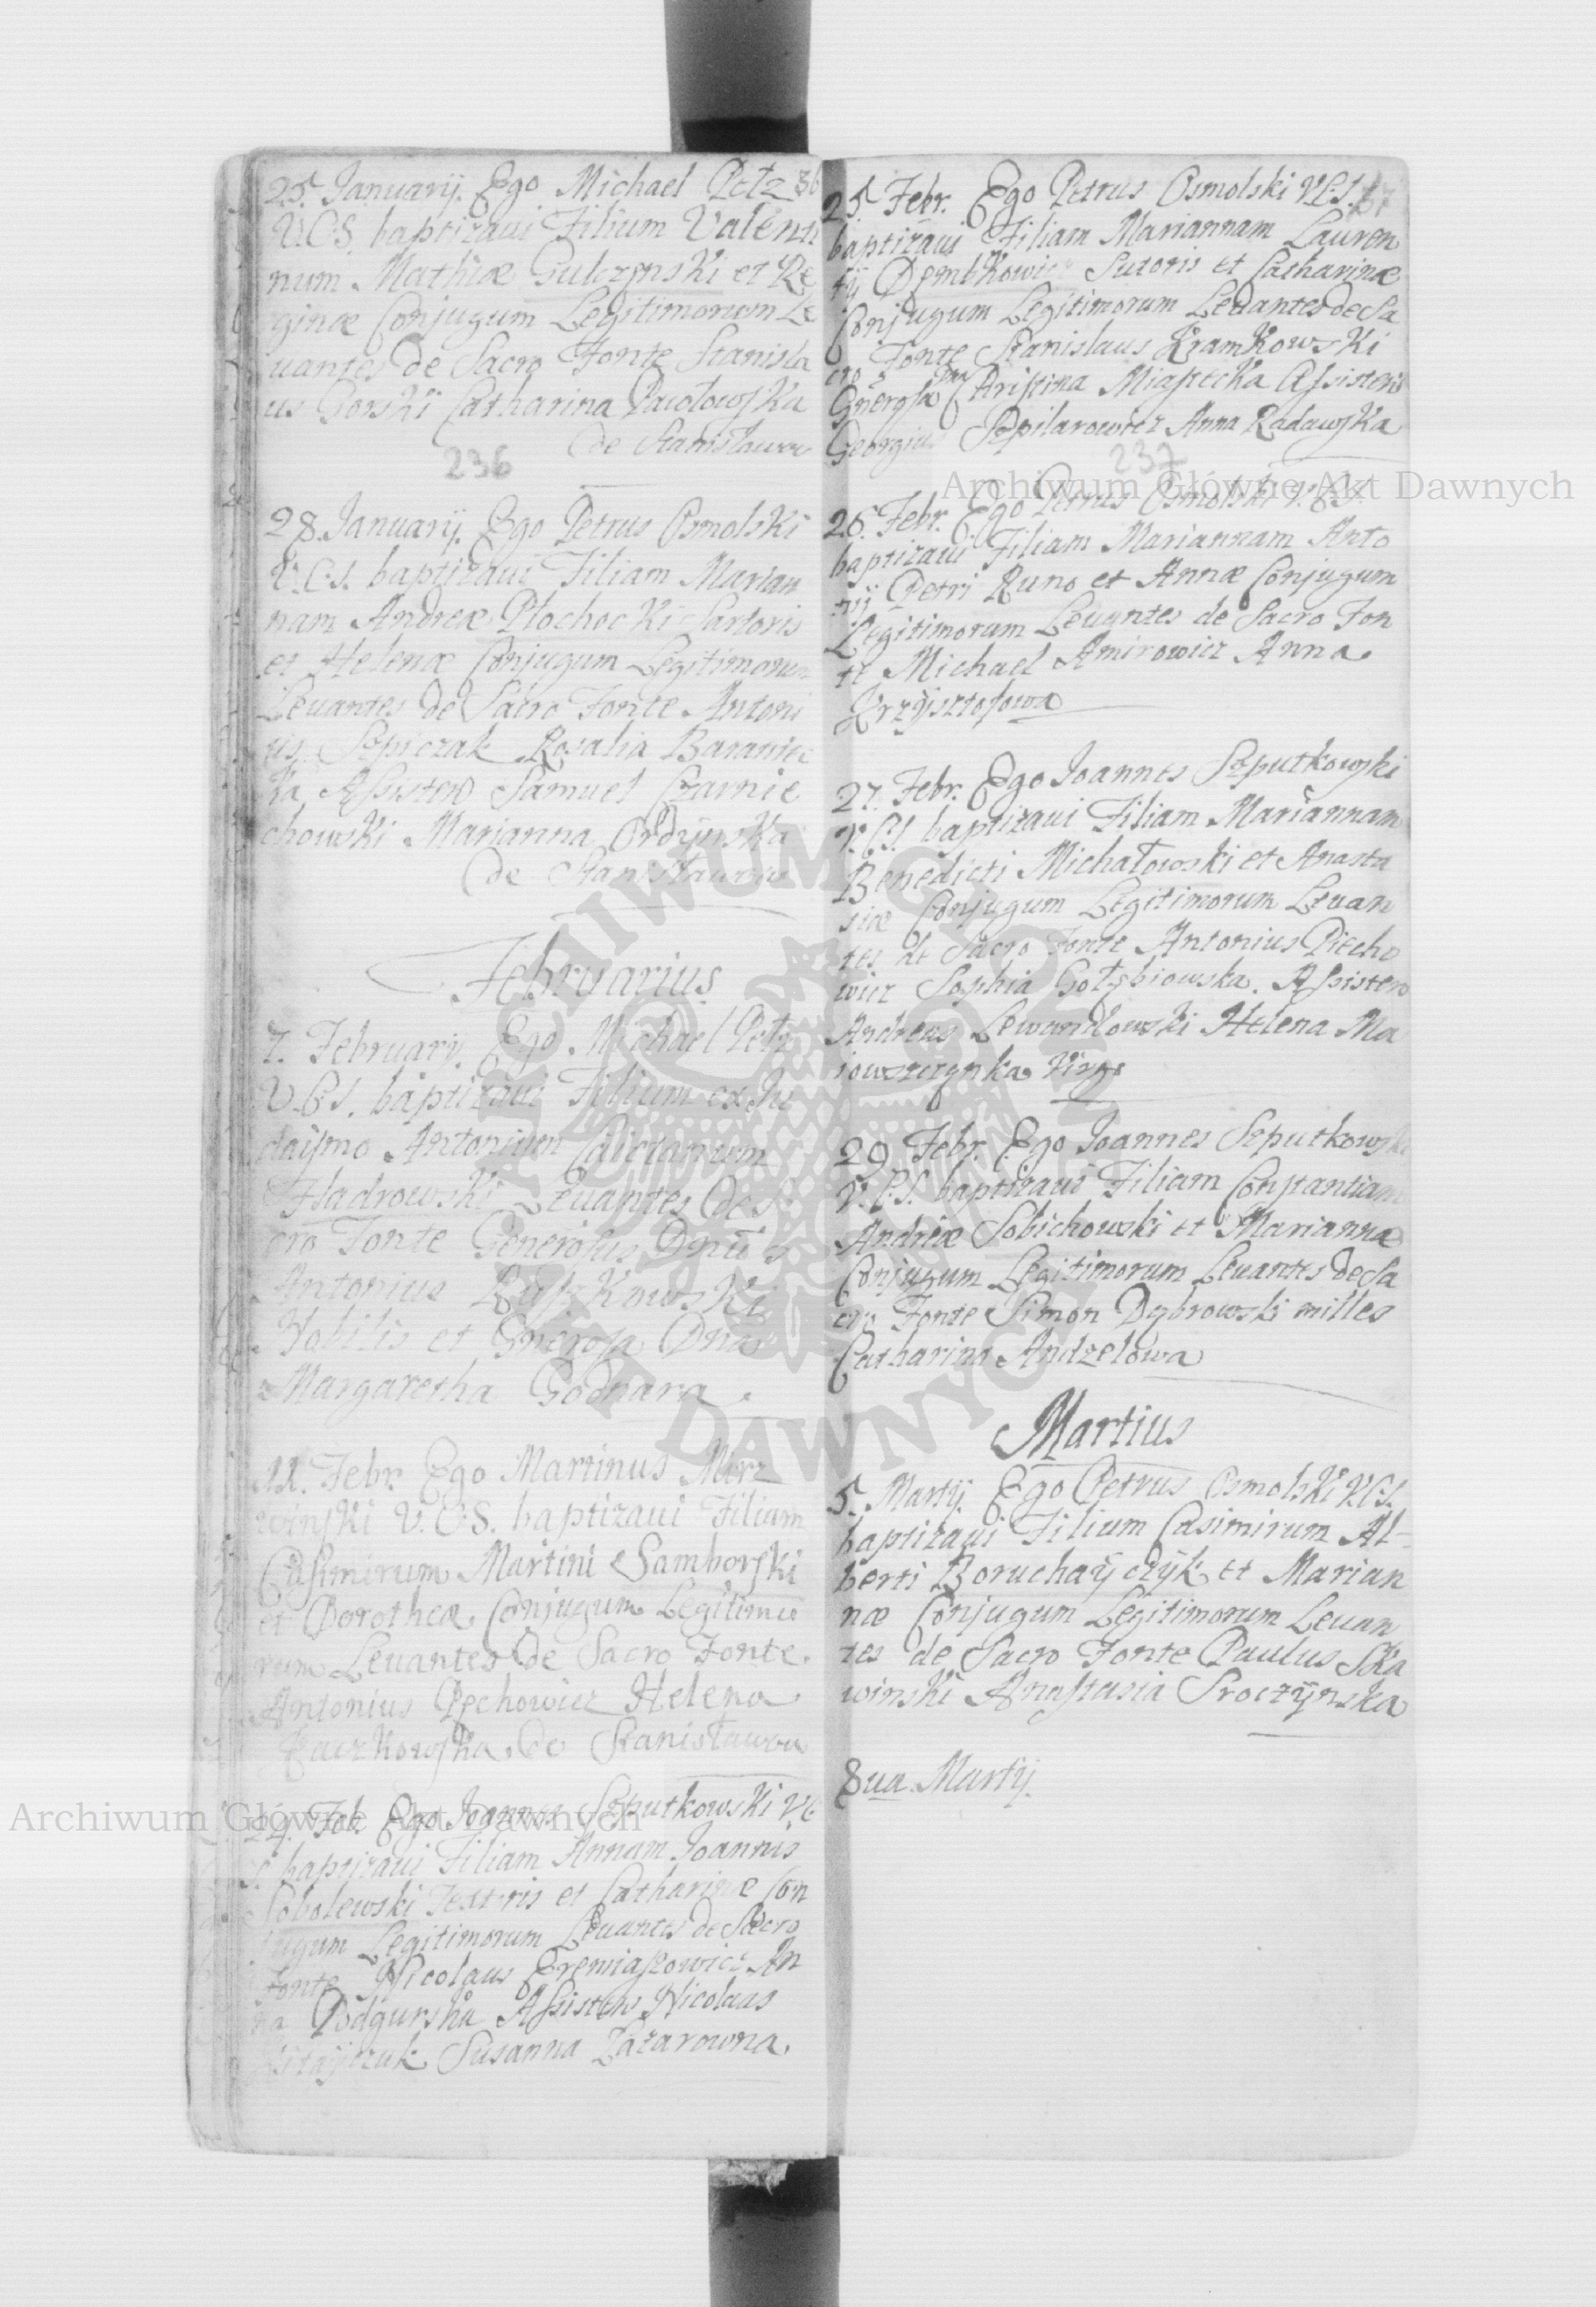 25. Januarij. Ego Michael Petz 36
V.C.S. baptizaui Filium Valenti
num Mathiæ Gulczenski et Re
ginæ Conjugum Legitimorum Le
uantes de Sacro Fonte Stanisla
us Gorski Catharina Pawołowska
de Stanisławow
236
28. Januarij. Ego Petrus Osmolski
V.C.S. baptizaui Filiam Marian
nam Andreæ Płochocki Sartoris
et Helenæ Conjugum Legitimorum
Leuantes de Sacro Fonte Antoni
us Szpiczak Rosalia Baraniec
ka Assisten Samuel Czarnie
chowski Marianna Ordynska
de Stanisławow
Februarius
7. Februarij. Ego Michael Petz
V.C.S. baptizaui Filium ex Ju
daismo Antonium Caietanum
Hadrowski Leuantes de S
cro Fonte Generosus Dnus
Antonius
Nobilis et Gnerosa Dna
Margaretha Godnara
11. Febr. Ego Martinus Mirz
winski V.C.S. baptizaui Filiam
Casimirum Martini Samborski
et Dorotheæ Conjugum Legitimo
rum Leuantes de Sacro Fonte
Antonius Pechowicz Helena
Raczkowska de Stanisławow
Feb. Ego Joannes Szputkowski V.C
S baptizaui Filiam Annam Joannis
Sobolewski Textoris et Catharinæ Con
jugum Legitimorum Leuantes de Sacro
Fonte Nicolaus Eremiaszowicz An
na Podgurska Assisten Nicolaus
Susanna Łazarowna.
25. Febr. Ego Petrus Osmolski V.C.S. 37
baptizaui Filiam Mariannam Lauren
tij Dembkowicz Sutoris et Catharinæ
Conjugum Legitimorum Leuantes de Sa
cro Fonte Stanislaus Kramkowski
Gnerosa Dna Christina Miastecka Assistens
Georgius Szpilarowicz Anna Radawska
237
26. Febr. Ego Petrus Osmolski V.C.S.
baptizaui Filiam Mariannam Anto
nij Petri Runo et Annæ Conjugum
Legitimorum Leuantes de Sacro Fon
te Michael Amirowicz Anna
Krzysztofowa
27. Febr. Ego Joannes Szputkowski
V.C.S. baptizaui Filiam Mariannam
Benedicti Michałowski et Anasta
siæ Conjugum Legitimorum Leuan
tes de Sacro Fonte Antonius Piecho
wicz Sophia Gołębiowska. Assisten
Andreas Lewandowski Helena Ma
iowszczynka Virgo
29 Febr. Ego Joannes Szputkowski
V.C.S. baptizaui Filiam Constantiam
Andreæ Sobichowski et Mariannæ
Conjugum Legitimorum Leuantes de Sa
cro Fonte Simon Dąbrowski milles
Catharina Andzelowa
Martius
5. Martij. Ego Petrus Osmolski V.C.S.
baptizaui Filium Casimirum Al-
berti Boruchayczyk et Marian
næ Conjugum Legitimorum Leuan
tes de Sacro Fonte Paulus Ska
winski Anastasia Sroczynska
8ua Martij.
Archiwum Główne Akt Dawnych
Archiwum Główne Akt Dawnych
ARCHIWUM GŁÓWNE AKT DAWNYCH